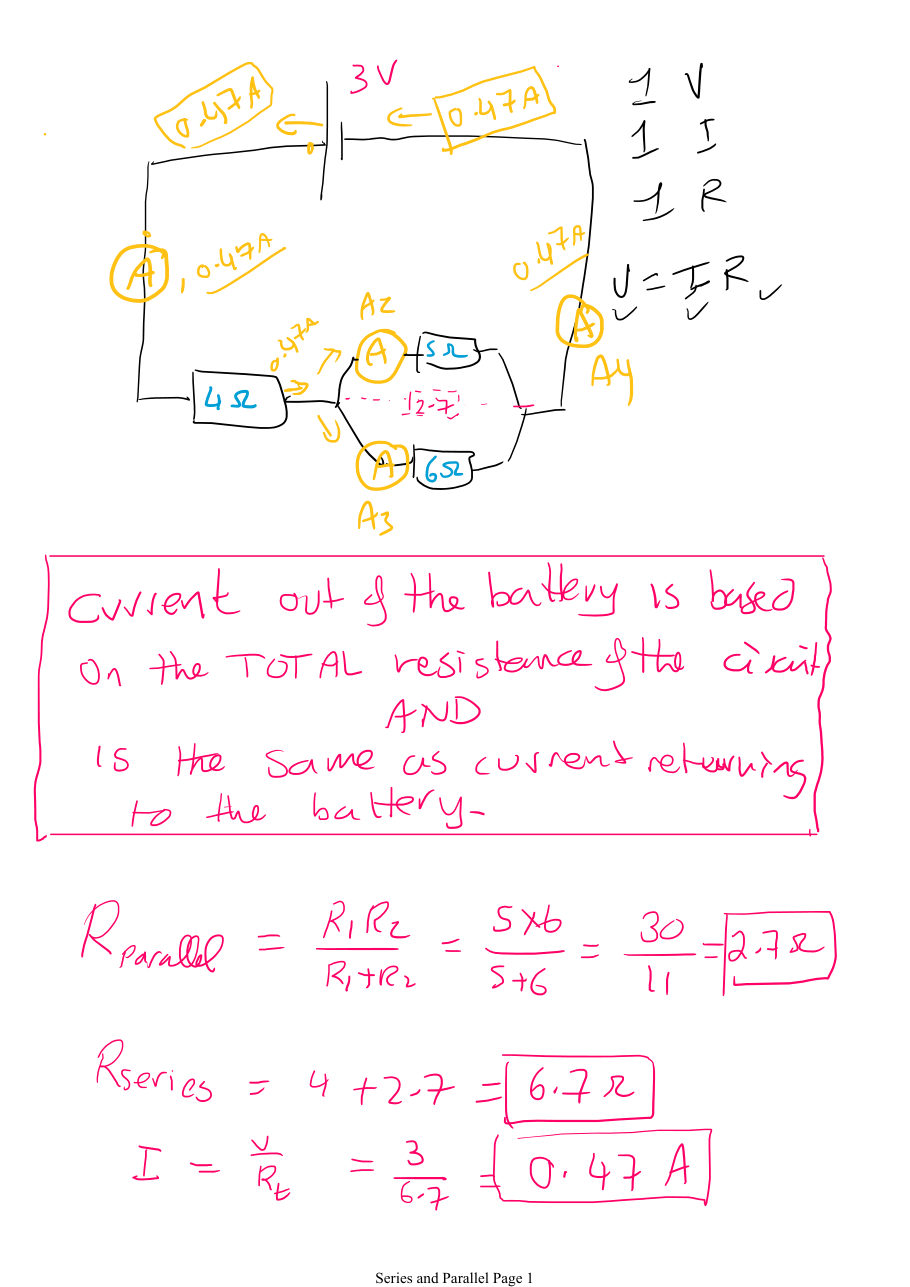 3V
0.47A
0.47A
1 V
1 I
1 R
V = I R
A, 0.47A
0.47A
0.47A
A2
A
5Ω
A
A4
4Ω
2.7
A
6Ω
A3
current out of the battery is based
on the TOTAL resistance of the circuit
AND
is the same as current returning
to the battery-
Rparallel = R1R2/R1+R2 = 5×6/5+6 = 30/11 = 2.7Ω
Rseries = 4 + 2.7 = 6.7Ω
I = V/Rt = 3/6.7 = 0.47 A
Series and Parallel Page 1